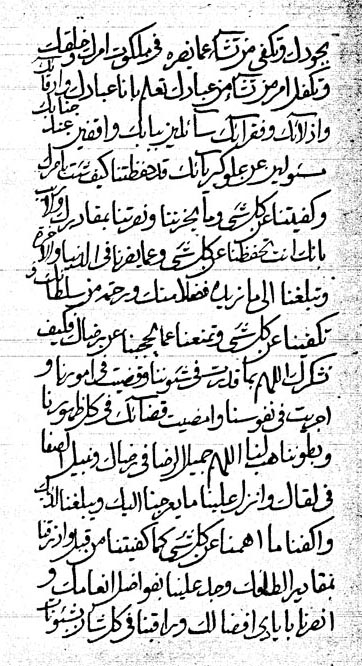 بجودك وتكفي من تشاء عما يضره في ملكوت امرك وخلقك
وتكفل امر من تشاء من عبادك تعلم بانا عبادك وارقائك
واذلائك وفقرائك سائلين ببابك واقفين عند جنابك
مسئولين عن علو كبريائك قد حفظتنا كيف شئت بامرك
وكفيتنا عن كل شيء وما يحزننا ونصرتنا بمقاديرك
بانك انت تحفظنا عن كل شيء وعما يضرنا في الدنيا والاخرة
وتبلغنا الى ما نريده فضلا منك ورحمة من سلطانك
تكفينا عن كل شيء وتمنعنا عما يحجبنا عن رضاك فكيف
نشكرك اللهم بما قدرت في شئوننا وقضيت في امورنا و
اجريت في نفوسنا وامضيت قضائك في كل ظهورنا
وبطوننا هب لنا اللهم جميل الرضا في رضاك ونبيل الصفا
في لقاك وانزل علينا ما يعرجنا اليك ويبلغنا
واكفنا ما اهمنا عن كل شيء كما كفيتنا من قبل وارزقنا
بمقادير الطافك وجد علينا بفواضل انعامك و
انصرنا بايادي افضالك ورافقنا في كل شان بشئونات